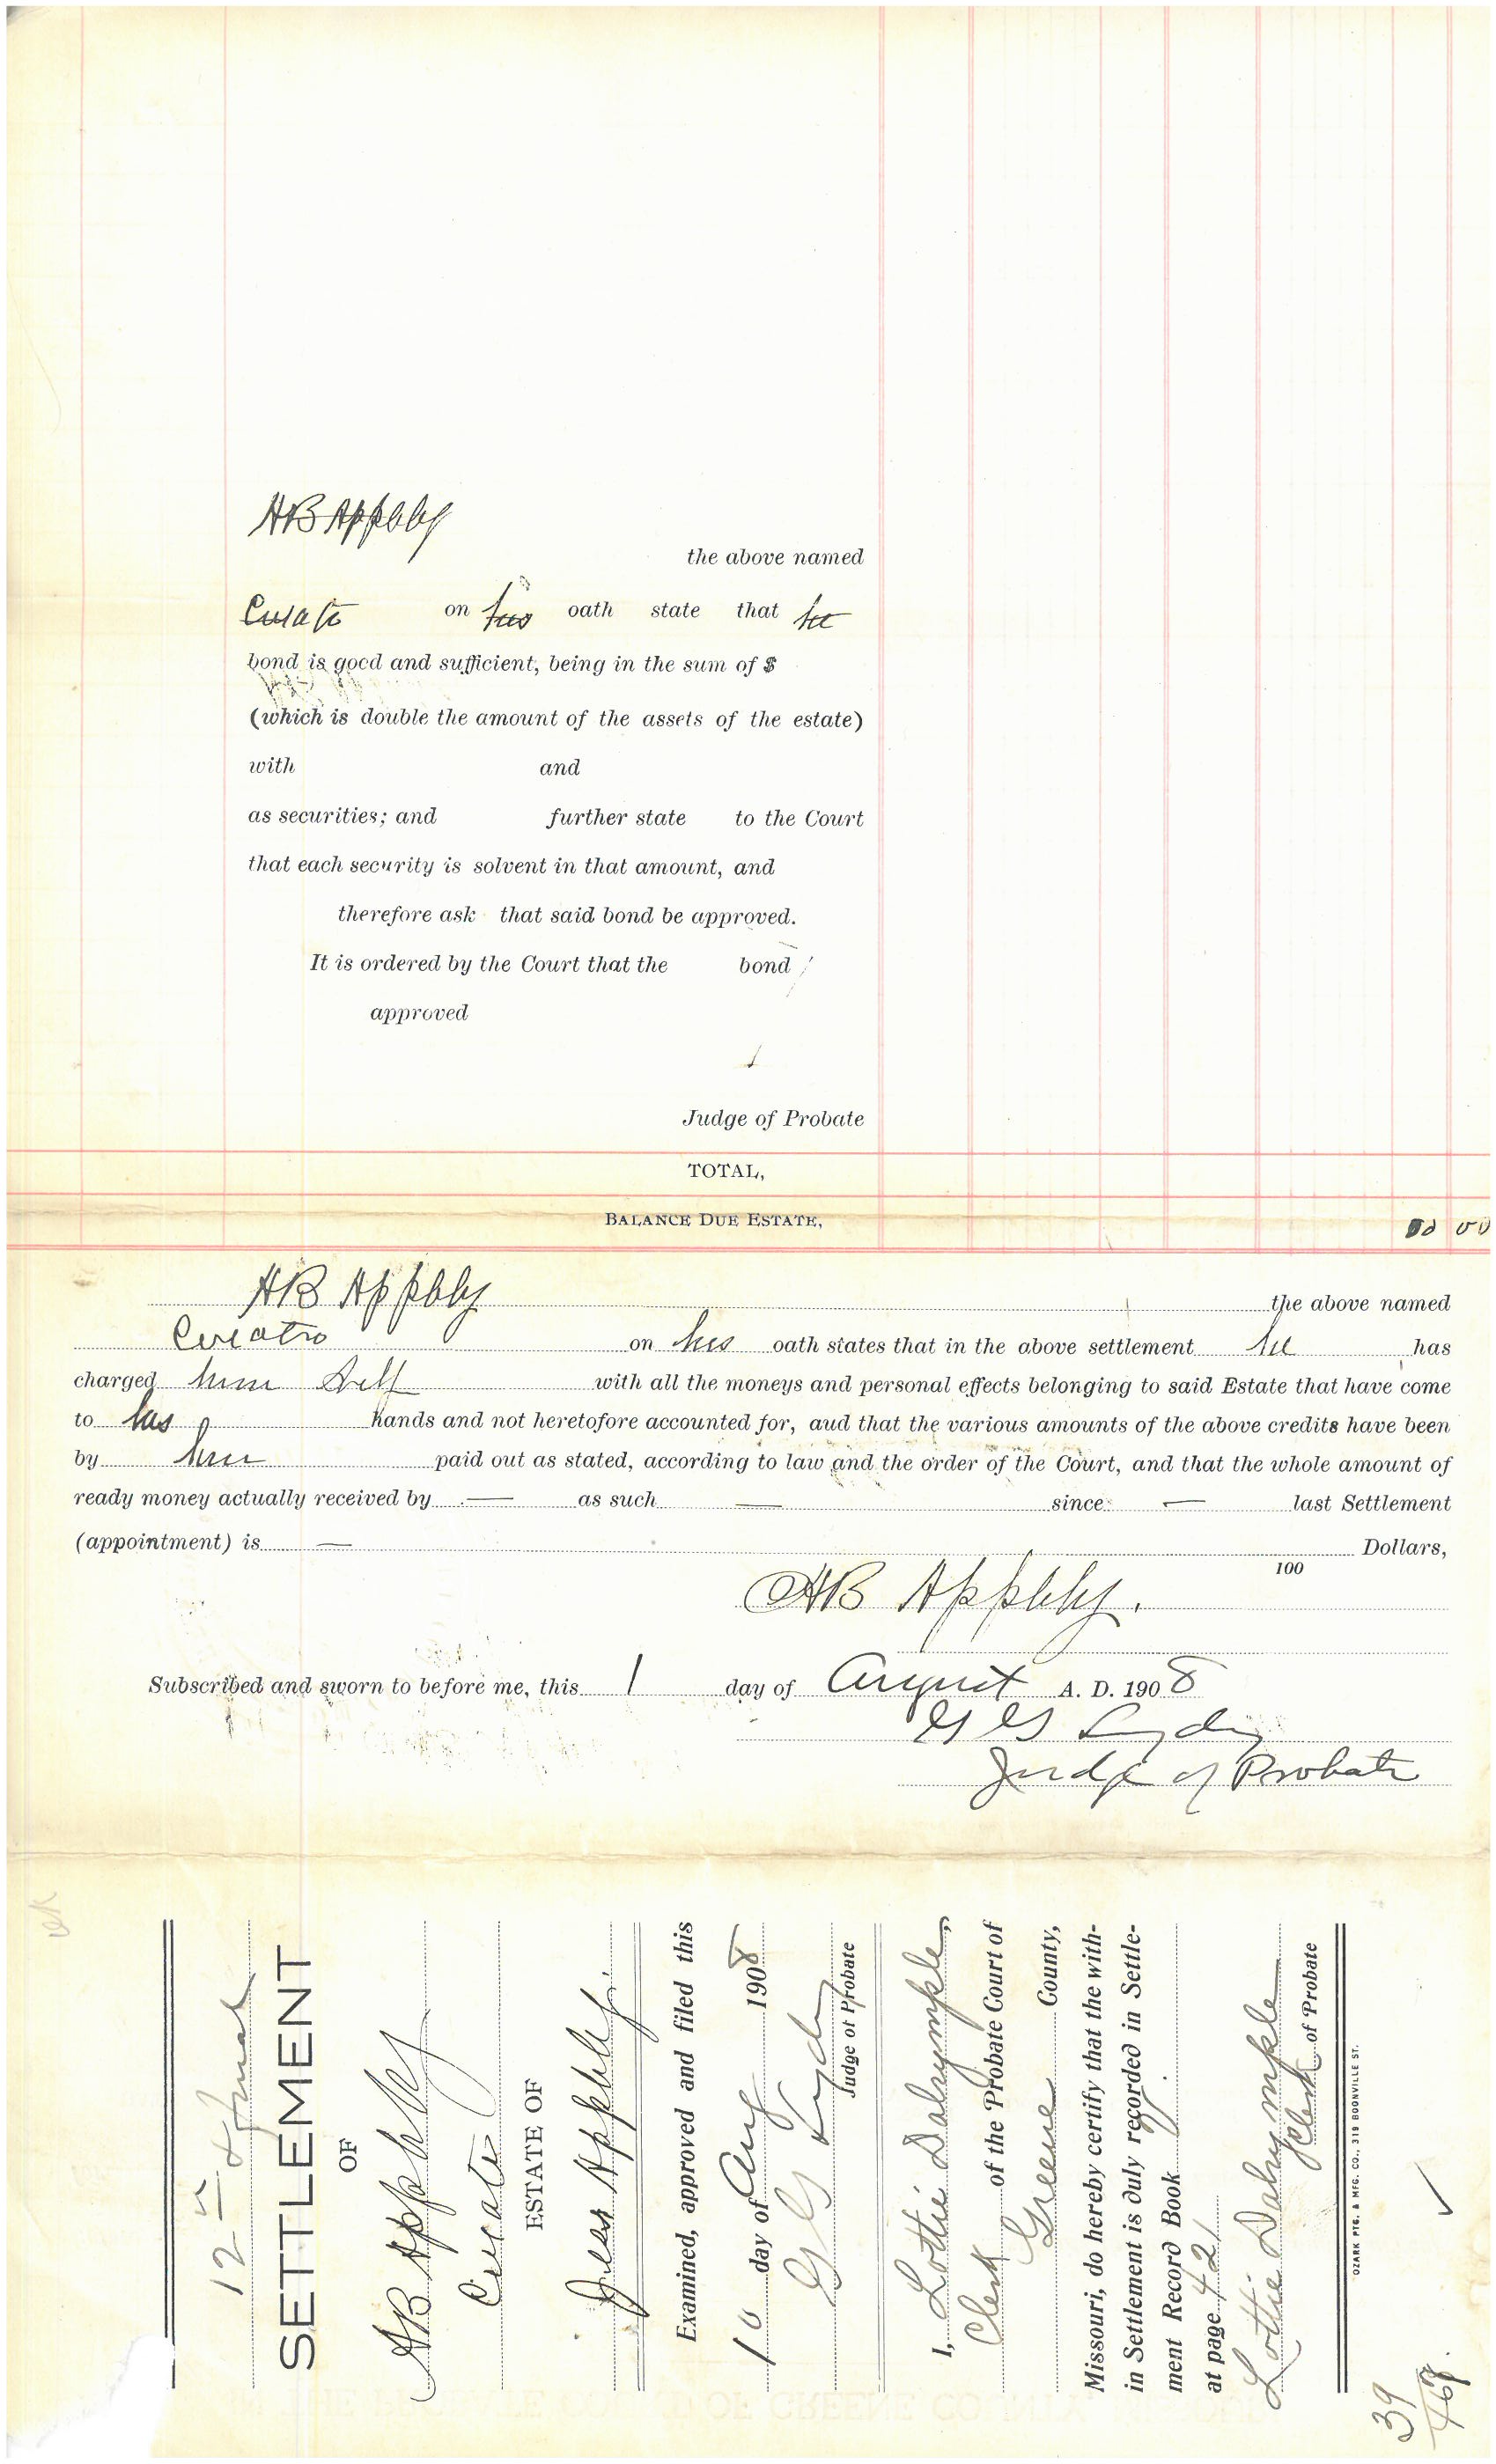 AB Appleby
the above named
Curator on his oath state that he
bond is good and sufficient, being in the sum of $
(which is double the amount of the assets of the estate)
with and
as securities; and further state to the Court
that each security is solvent in that amount, and
therefore ask that said bond be approved.
It is ordered by the Court that the bond
approved
Judge of Probate
TOTAL,
BALANCE DUE ESTATE,
00 00
AB Appleby the above named
Curator on his oath states that in the above settlement he has
charged him self with all the moneys and personal effects belonging to said Estate that have come
to his hands and not heretofore accounted for, aud that the various amounts of the above credits have been
by him paid out as stated, according to law and the order of the Court, and that the whole amount of
ready money actually received by — as such — since — last Settlement
(appointment) is — Dollars,
100
AB Appleby.
Subscribed and sworn to before me, this 1 day of August A. D. 1908
Judge of Probate
12 & final
SETTLEMENT
OF
AB Appleby
Curator
ESTATE OF
Jess Appleby.
Examined, approved and filed this
10 day of Aug 1908
Judge of Probate
I, Lottie Dalrymple,
Clerk of the Probate Court of
Greene County,
Missouri, do hereby certify that the with-
in Settlement is duly recorded in Settle-
ment Record Book
at page 421
Lottie Dalrymple
Clerk of Probate
OZARK PTG. & MFG. CO., 319 BOONVILLE ST.
39